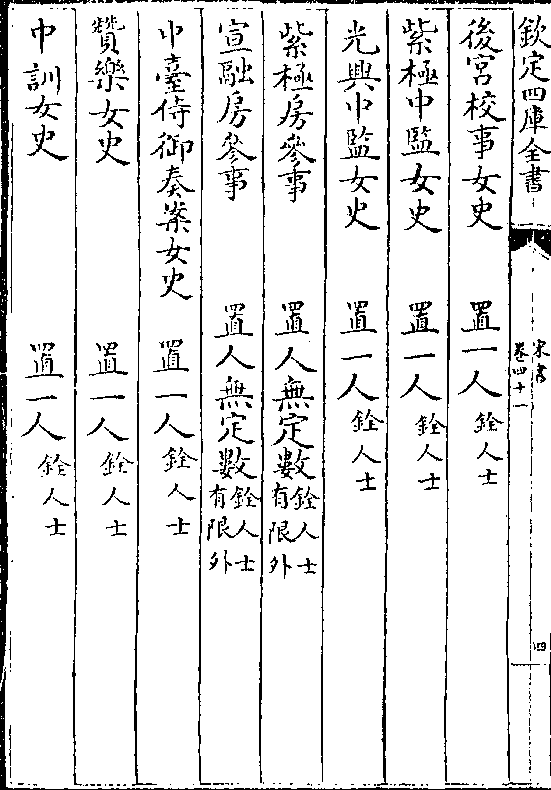 欽定四庫全書
宋書
卷四十一
四
後宮校事女史 置一人銓人士
紫極中監女史 置一人銓人士
光興中監女史 置一人銓人士
紫極房參事 置人無定數銓人士有限外
宣融房參事 置人無定數銓人士有限外
中臺侍御奏案女史 置一人銓人士
贊樂女史 置一人銓人士
中訓女史 置一人銓人士